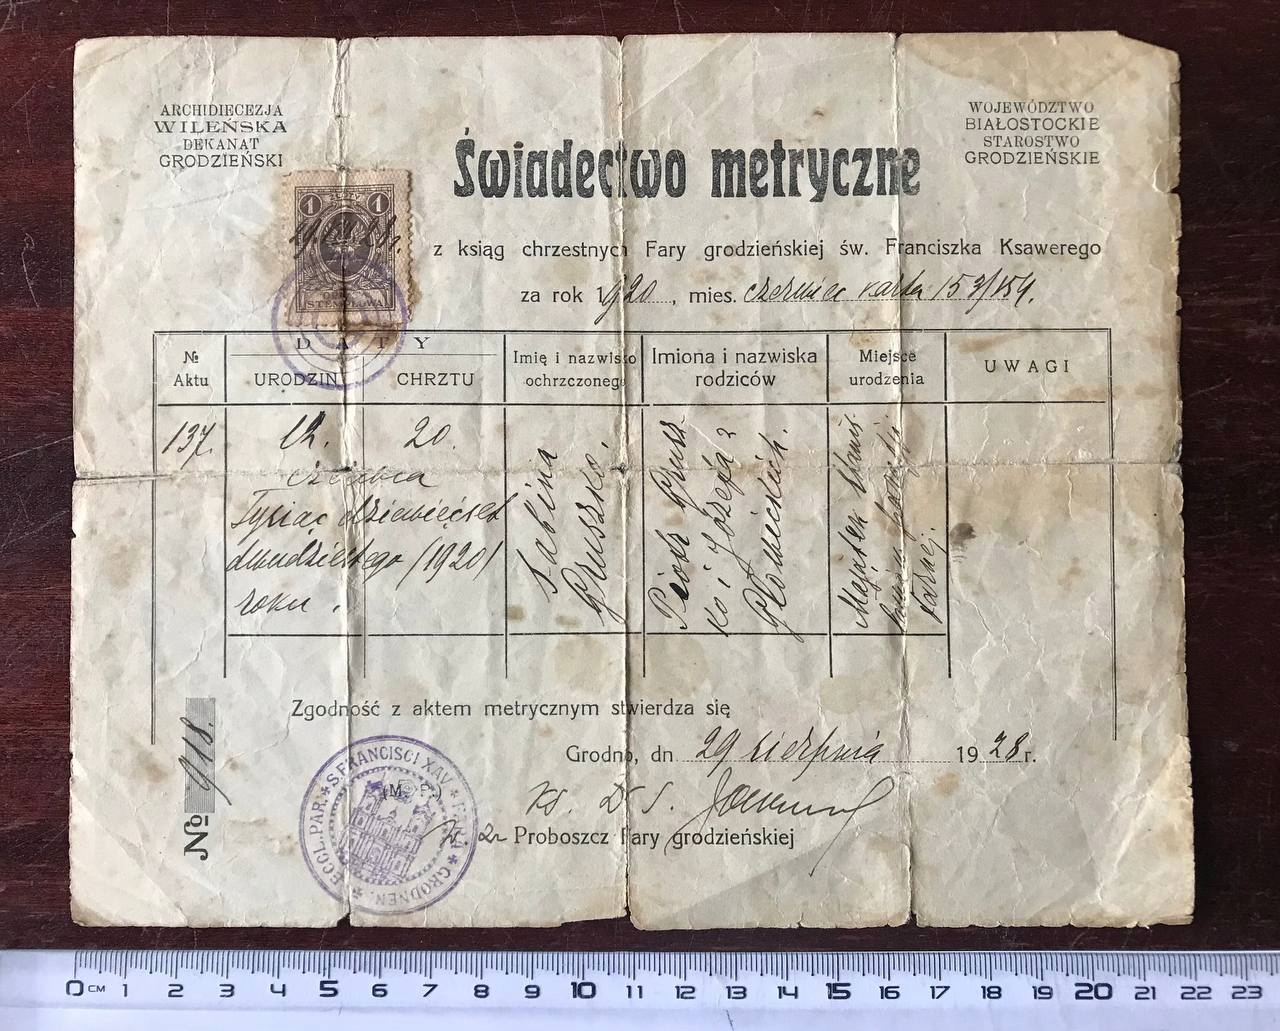 ARCHIDIECEZJA
WILEŃSKA
DEKANAT
GRODZIEŃSKI
WOJEWÓDZTWO
BIAŁOSTOCKIE
STAROSTWO
GRODZIEŃSKIE
Świadectwo metryczne
1 ZŁOTY 1
STEMPLOWA
z ksiąg chrzestnych Fary grodzieńskiej św. Franciszka Ksawerego
za rok 1920, mies. czerwiec karta 153/154.
№ Aktu
DATY
URODZIN
CHRZTU
Imię i nazwisko ochrzczonego
Imiona i nazwiska rodziców
Miejsce urodzenia
UWAGI
137.
12.
20.
czerwca
Tysiąc dziewięćset
dwudziestego /1920/
roku.
Sabina
Gruszko.
Piotr Grusz
ko i Józefa z
Głowickich.
Majątek Stanis
parafji
Farnej.
Zgodność z aktem metrycznym stwierdza się
Grodno, dn 29 sierpnia 1928 r.
№ 918.
(M. P.)
Ks. Dr S.
Proboszcz Fary grodzieńskiej
ECCL. PAR. * S. FRANCISCI XAV. * GRODNEN. *
0 CM 1 2 3 4 5 6 7 8 9 10 11 12 13 14 15 16 17 18 19 20 21 22 23